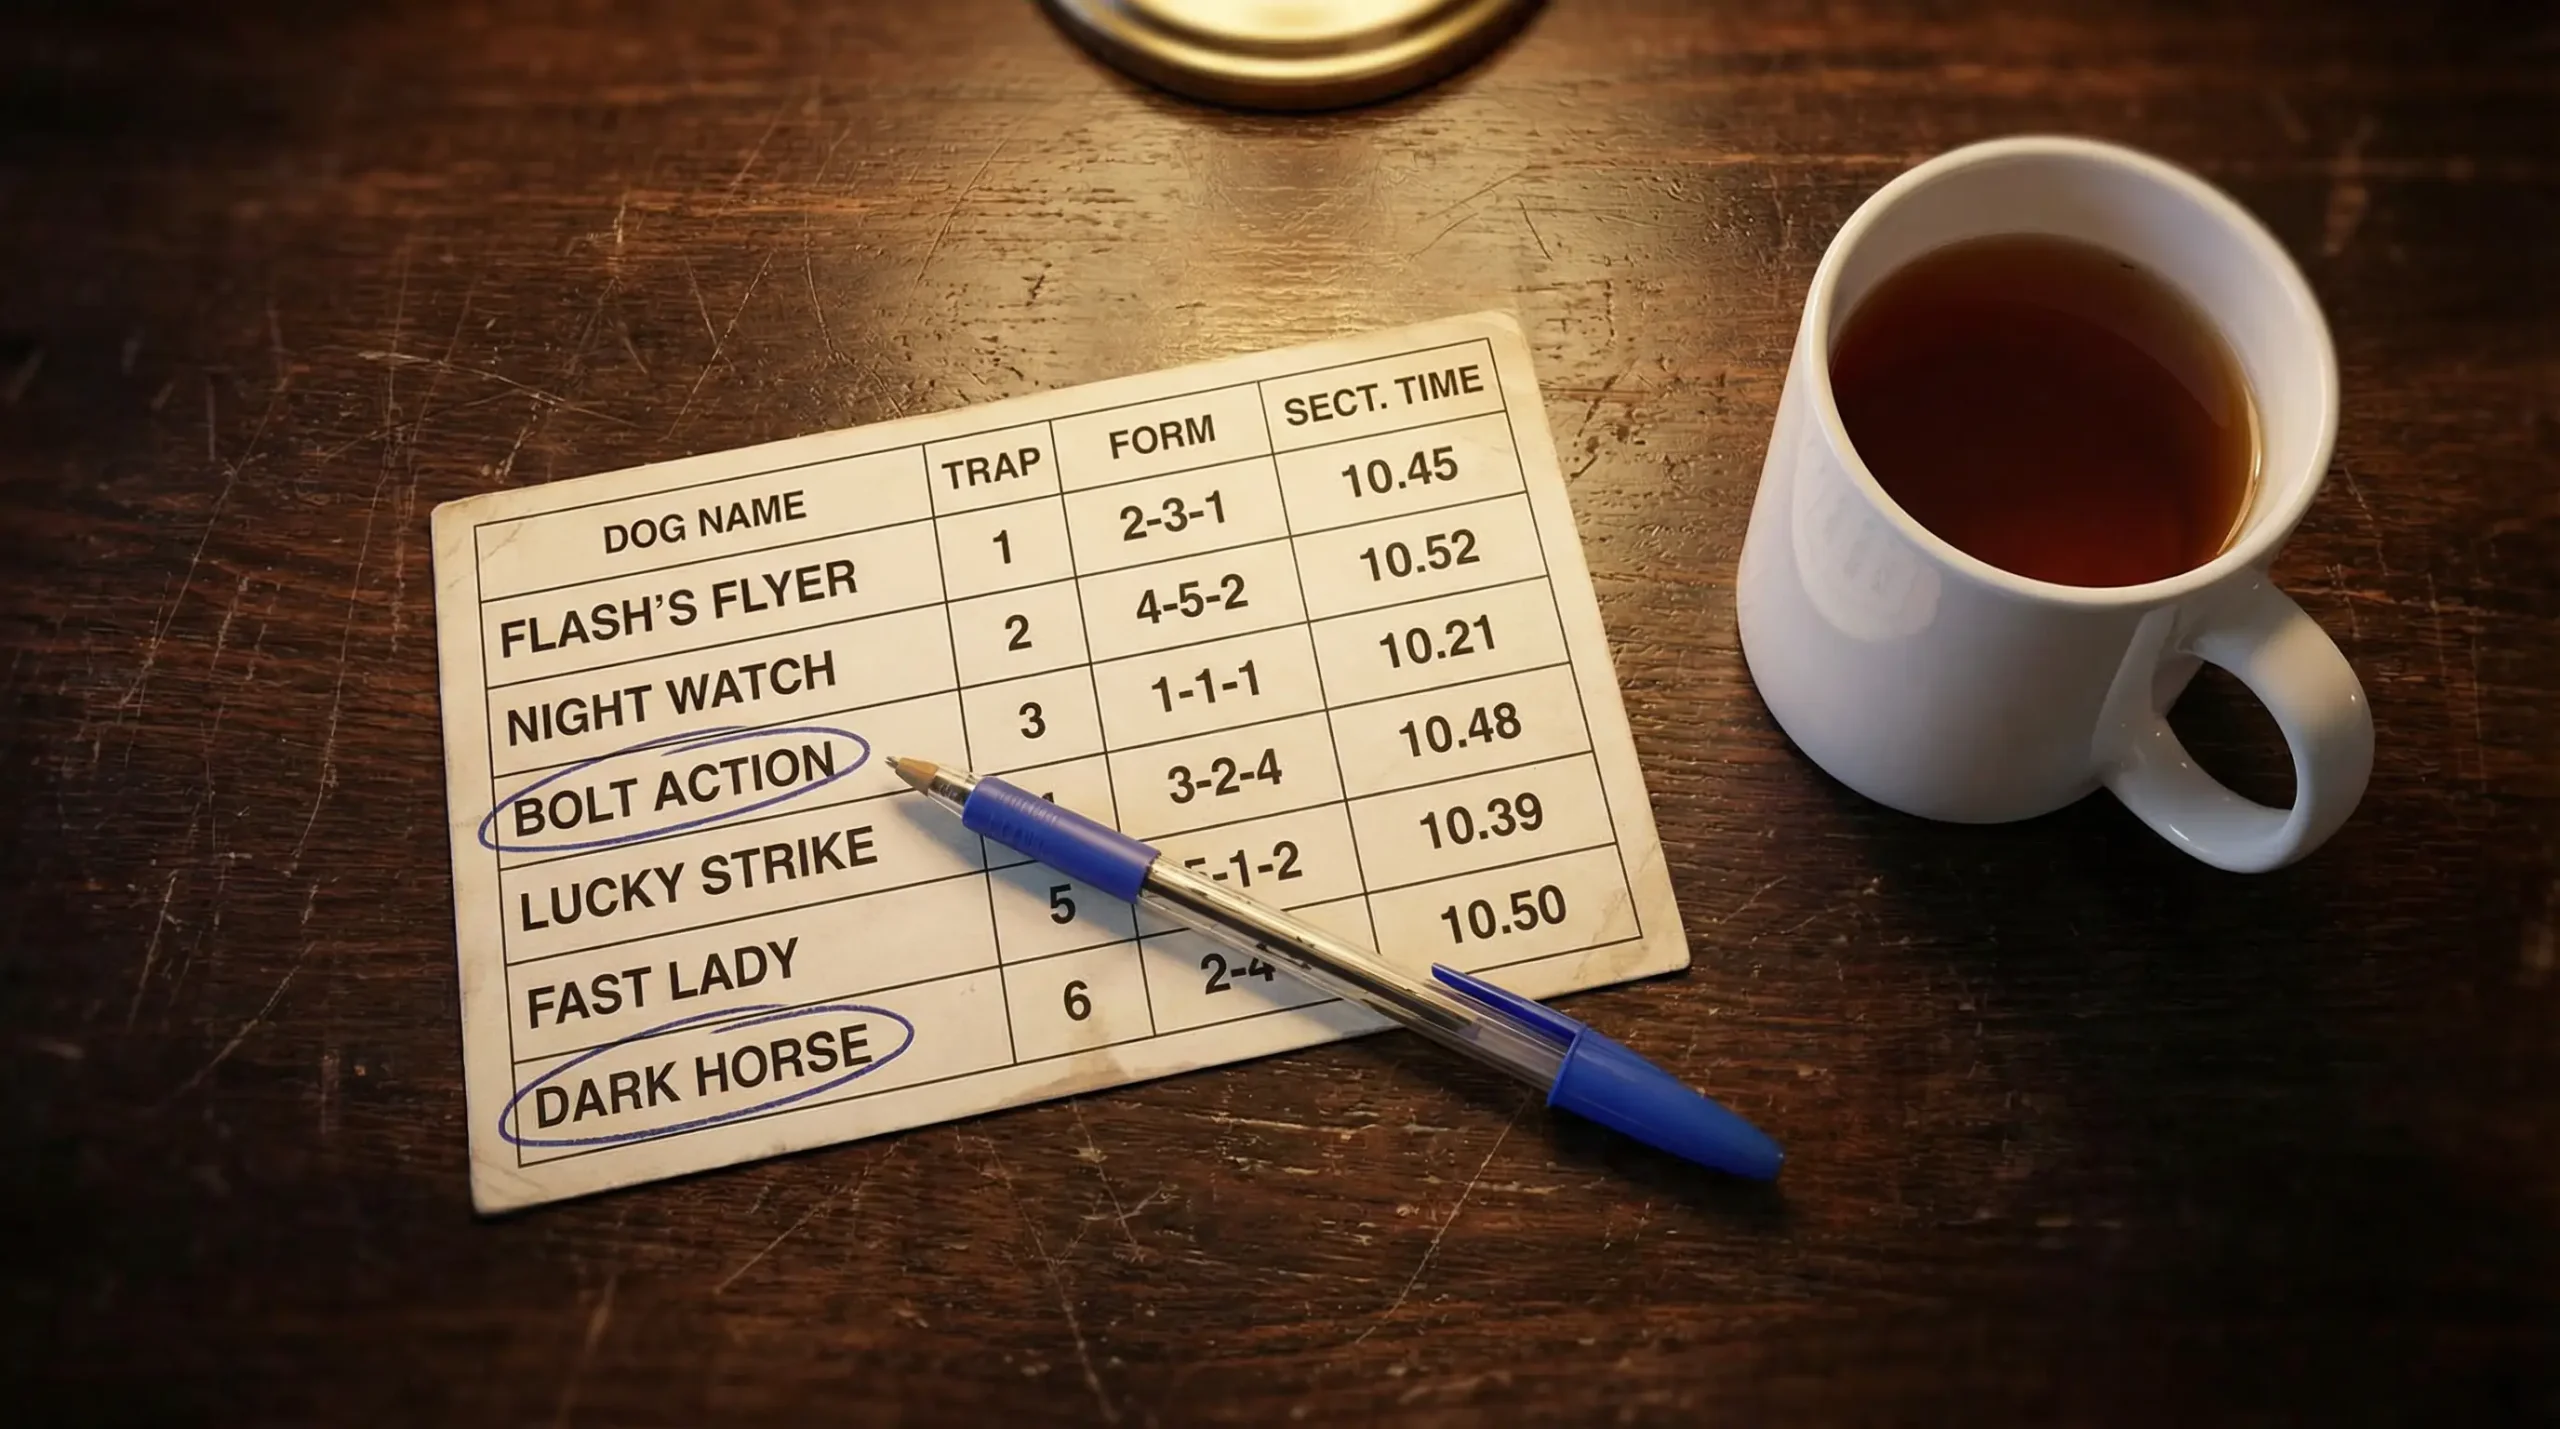 DOG NAME TRAP FORM SECT. TIME
FLASH'S FLYER 1 2-3-1 10.45
NIGHT WATCH 2 4-5-2 10.52
BOLT ACTION 3 1-1-1 10.21
LUCKY STRIKE 3-2-4 10.48
FAST LADY 5 -1-2 10.39
DARK HORSE 6 2-4 10.50